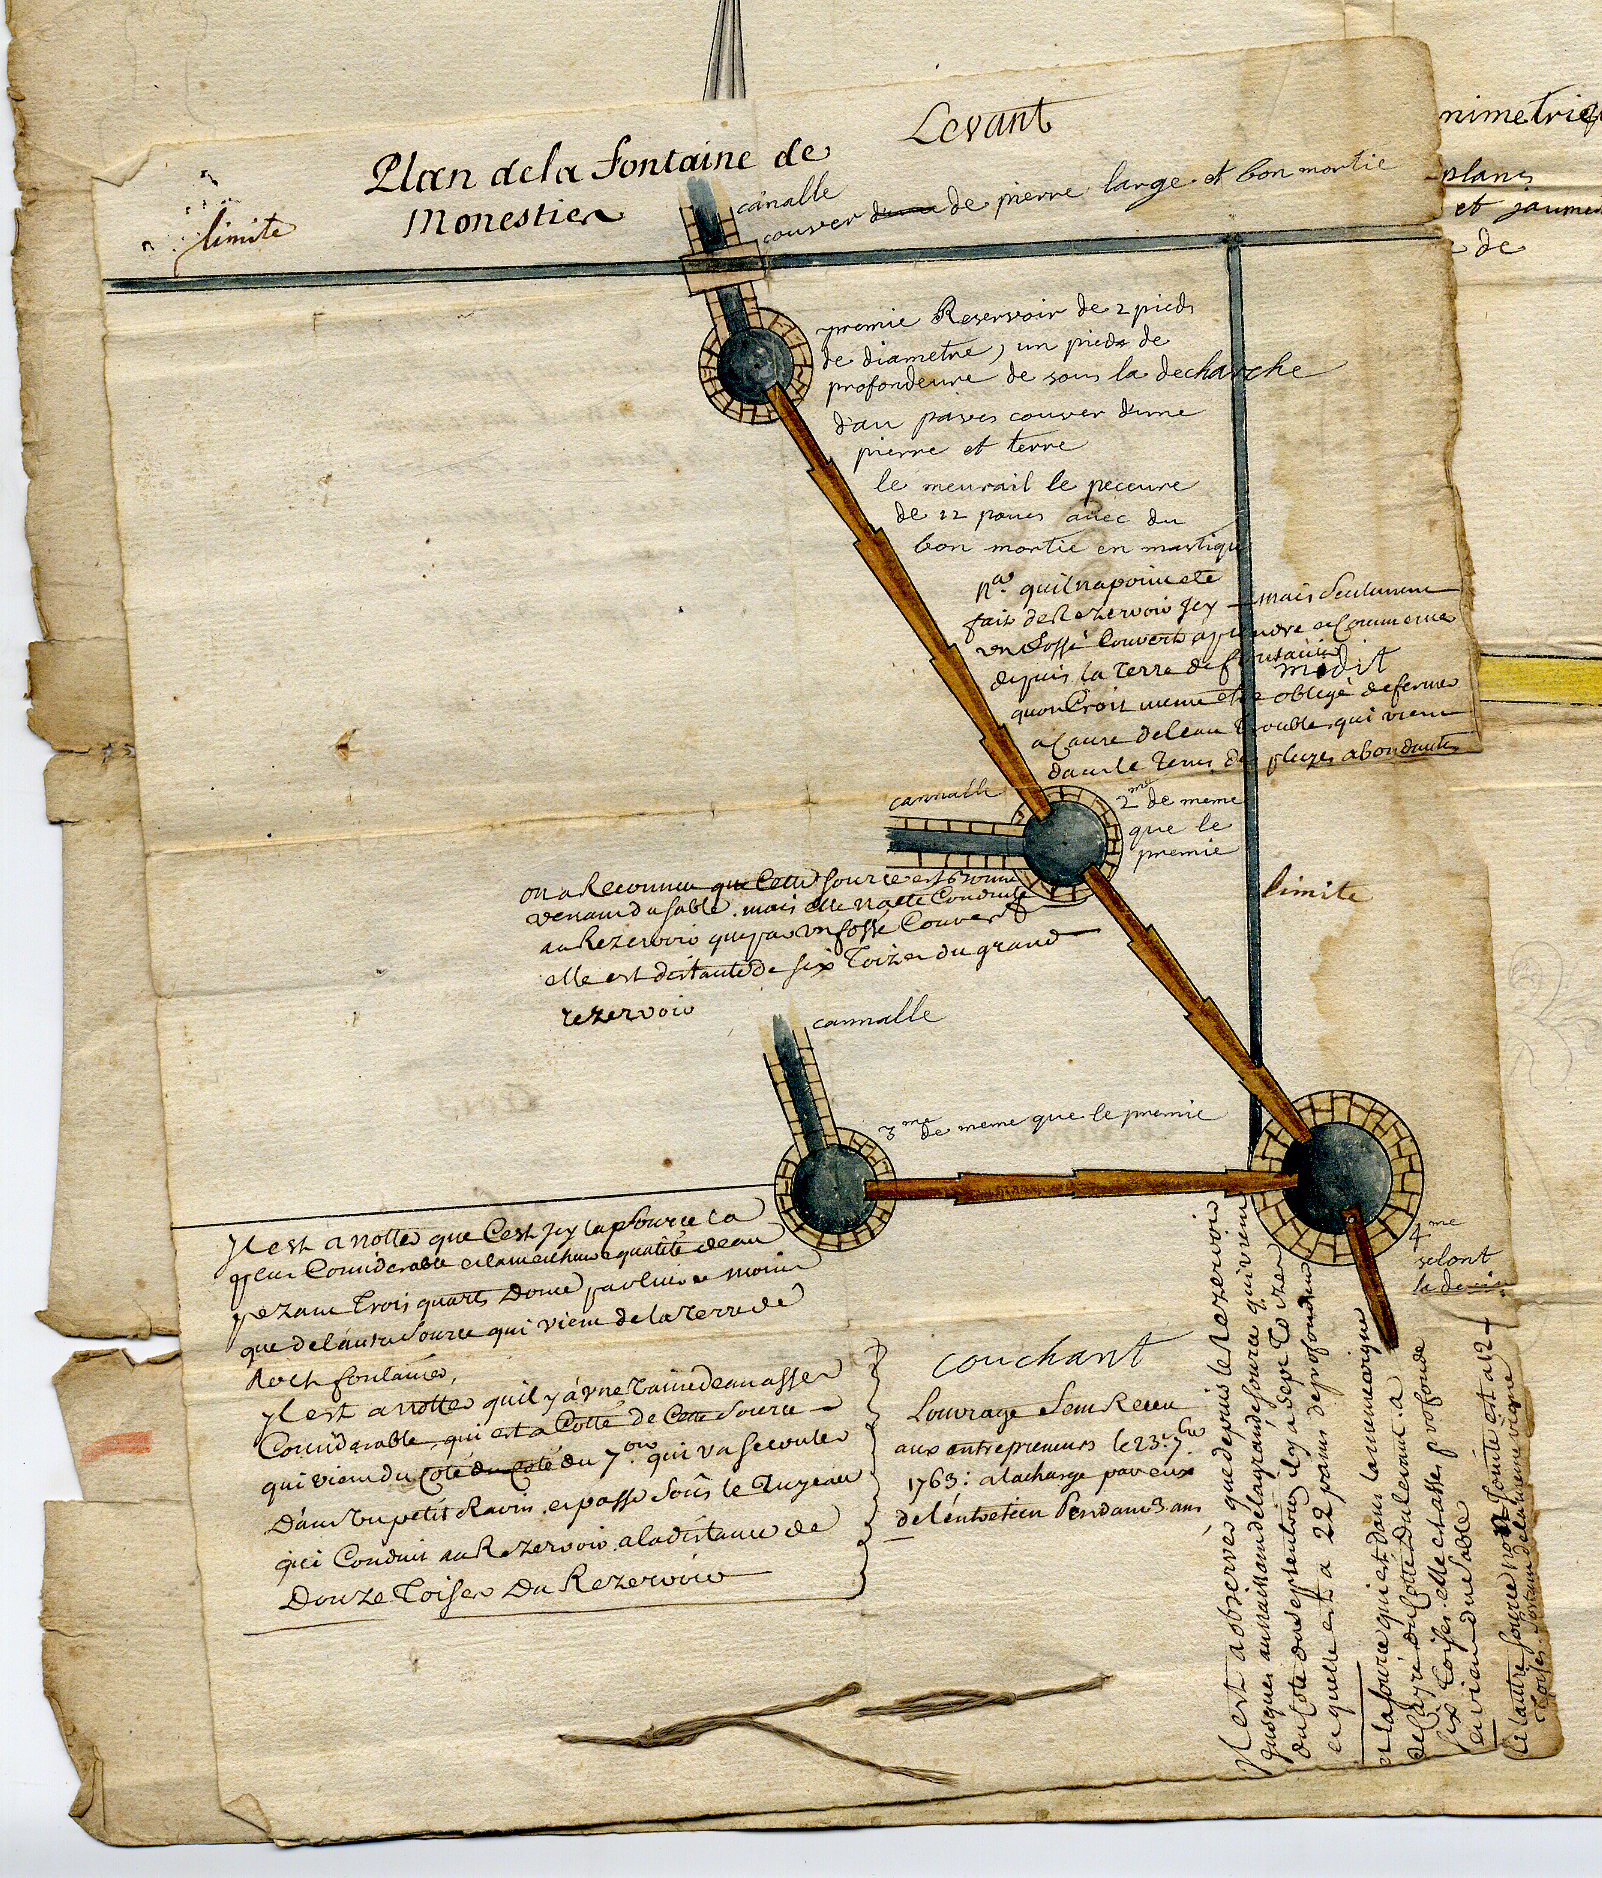 Levant
Plan de la fontaine de
Monestier
limite
canalle
couver d'une de pierre large et bon mortie
nimetriq
plans
et jaumes
de
premie Reservoir de 2 pieds
de diametre, un pieds de
profondeure de sous la decharche
d'au paves couver d'une
pierre et terre
le meurail le peceure
de 12 pouces avec du
bon mortie en mastique
Na. quil na poin ete
fait de Rezervoir Jcy mais Seulement
un fossé Couvert a prendre et Commence
depuis la Terre de fontaine
midit
quon Croit meme etre obligé de fermer
a Cause de leau trouble qui vient
dans le Tems des pluyes abondantes
cannalle
2me de meme
que le
premie
limite
on a Reconnu que Cette Source est bonne
venant du sable. mais elle na ete Conduite
au Rezervoir que par un fossé Couvert
elle est distante de six Toizes du grand
rezervoir
cannalle
3me de meme que le premie
4me
selont
le devis
Il est a notter que C'est Jcy la Source la
plus Considerable et la meilleure qualité deau
pezant Trois quarts Donce par livre moins
que de lautre Source qui vient de la Terre de
Roch fontaine.
Il est a notter quil y a vne Taine deau asser
Considerable, qui est a Cotté de Cette Source
qui vient du Coté du Coté du 7on qui va secouler
Dans un petit Ravin et passe Sous le Tuyeau
qui Conduit au Rezervoir a la distance de
Douze Toises Du Rezervoir
couchant
Louvrage Sem Receu
aux entrepreneurs le 23e 7bre
1763: a la charge par eux
de l'entretien Pendant 3 ans
Il est a observer que depuis le Rezervoir
jusques au naissant de la grande source qui vient
du Coté du septentrion il y a sept Toizes
et quelle est a 22 pams de profondeur
et la source qui est dans la meme vigne
de Cayré du Cotté Du levant a
six Toises. elle est asses profonde
et vient du Sable